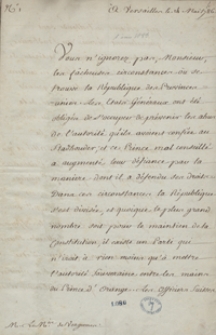 N.° 1
A Versailles le 4 Mai 1786
Vous n'ignorez pas, Monsieur,
les facheuses circonstances où se
trouve la République des Provinces
unies. Les Etats Généraux ont été
obligés de s'occuper de prévenir les abus
de l'autorité qu'ils avoient confiée au
Stadhouder, et ce Prince mal conseillé
a augmenté leur défiance par la
maniere dont il a défendu ses droits.
Dans ces circonstances la République
s'est divisée, et quoique le plus grand
nombre soit pour le maintien de la
Constitution, il existe un Parti qui
n'aspire à rien moins qu'à mettre
l'autorité Souveraine entre les mains
du Prince d'Orange. Les Officiers Suisses
M. le M.is de